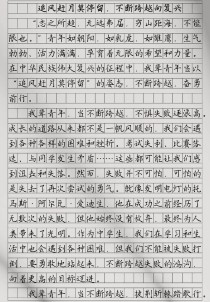 追风赶月莫停留，不断跨越向复兴
“志之所趋，无远弗届，穷山距海，不能
限也。”青年如朝阳，如乳虎，如雏鹰，生气
勃勃，活力满满，孕育着无限的希望和力量。
在中华民族伟大复兴的征程中，我辈青年当以
“追风赶月莫停留”的姿态，不断跨越，奋勇
前行。
我辈青年，当不断跨越，不惧失败逐浪高。
成长的道路从来都不是一帆风顺的，我们会遇
到各种各样的困难和挫折。考试失利，比赛落
选，与同学发生矛盾……这些都可能让我们感
到沮丧和失落。然而，失败并不可怕，可怕的
是失去了再次尝试的勇气。就像发明电灯的托
马斯·阿尔瓦·爱迪生，他在成功之前经历了
无数次的失败，但他始终没有放弃，最终为人
类带来了光明。作为中学生，我们在学习和生
活中也会遇到各种困难，但我们不能被失败打
倒，要勇敢地站起来，不断跨越失败的沟沟，
向着更高的目标迈进。
我辈青年，当不断跨越，披荆斩棘踏歌行。